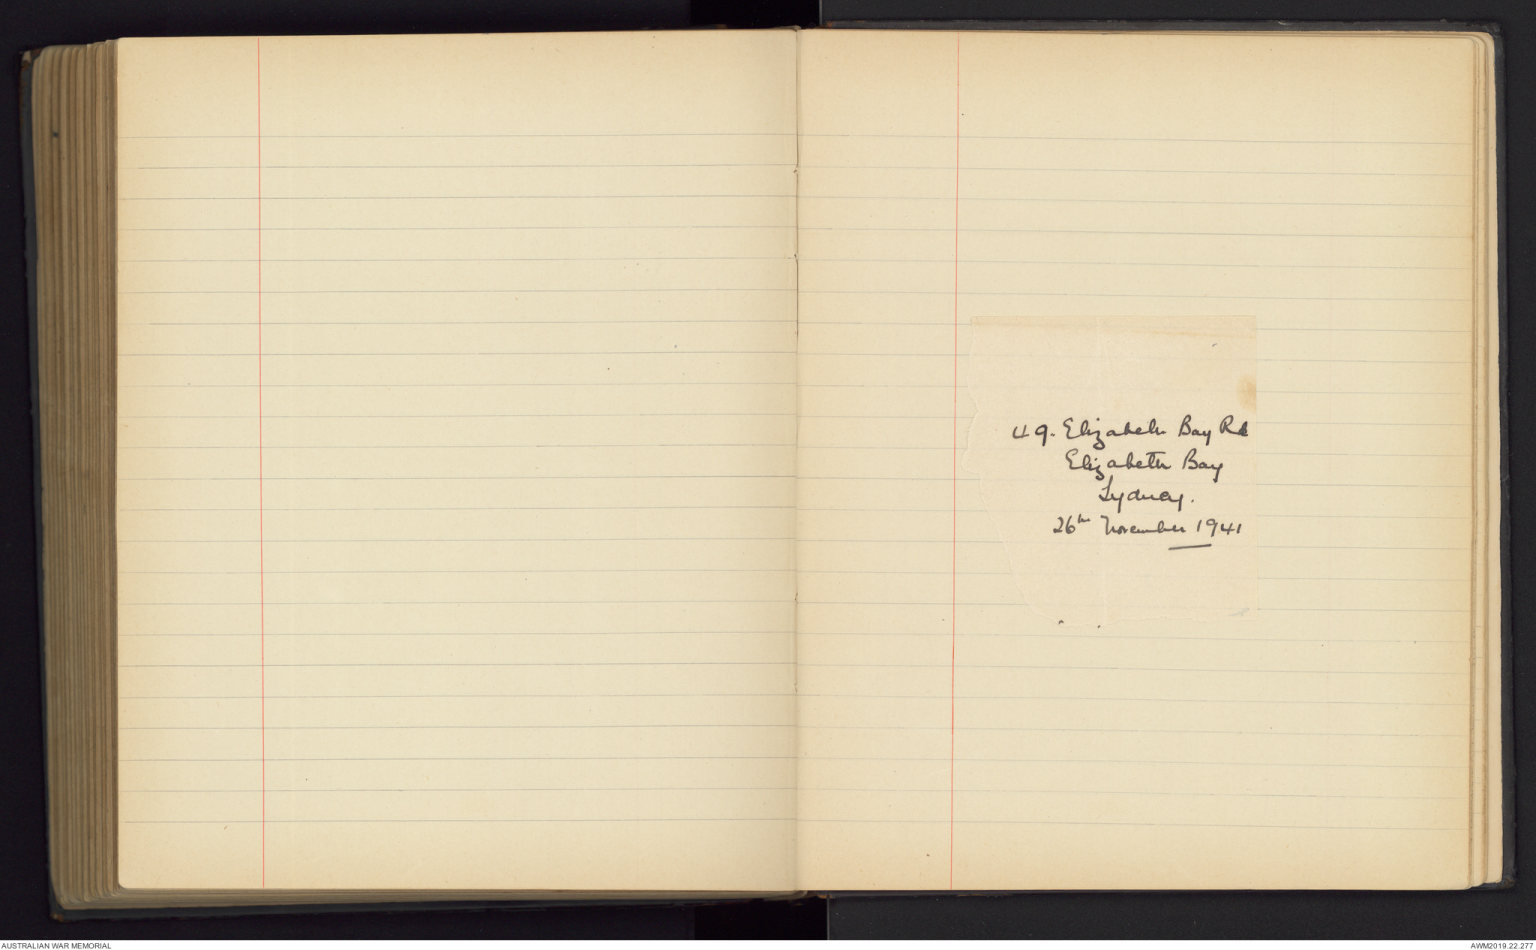 49. Elizabeth Bay Rd
Elizabeth Bay
Sydney.
26th November 1941
AUSTRALIAN WAR MEMORIAL
AWM2019.22.277